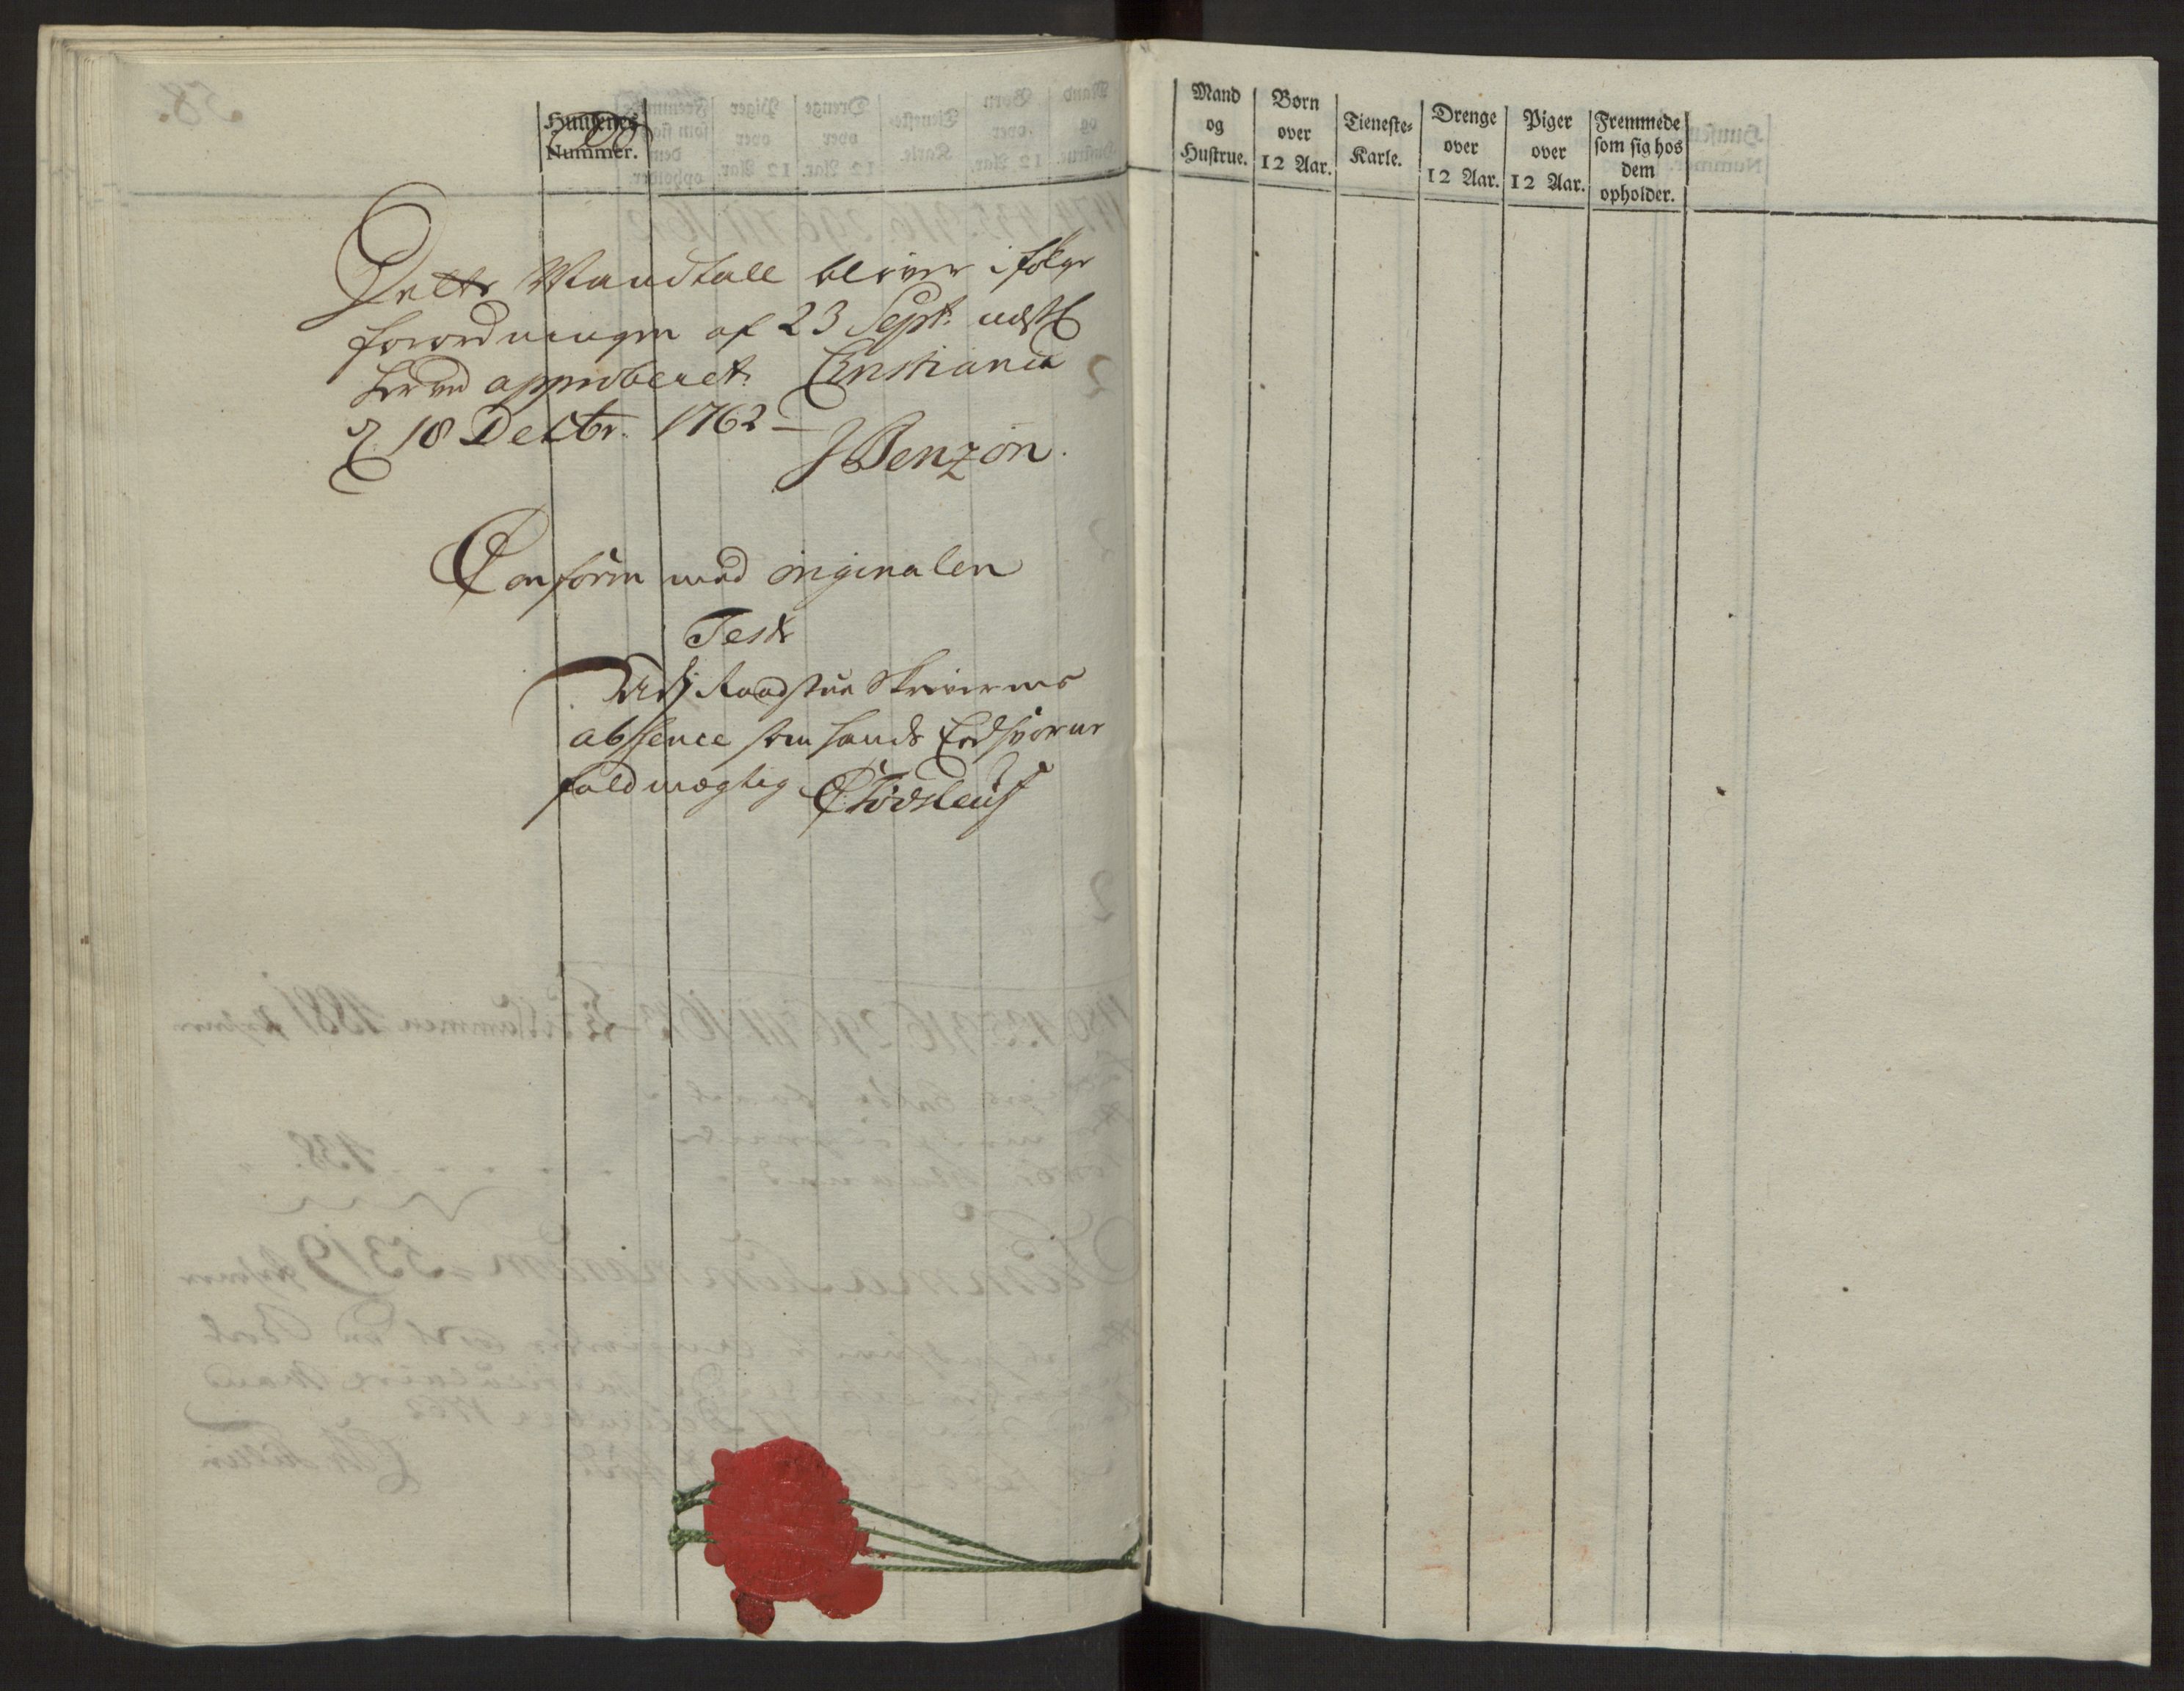 Huusenes
Nummer.
Dette Mandtall bliver i følge
forordningen af 23 Sept.
herved approberet. Christiania
d. 18 Decbr. 1762 –
JBenzon.
Conform med originalen
Teste
Raadstue Skriverens
absence som hands Eedsvorne
fuldmægtig
Mand
og
Hustrue.
Børn
over
12 Aar.
Tieneste-
Karle.
Drenge
over
12 Aar.
Piger
over
12 Aar.
Fremmede
som sig hos
dem
opholder.